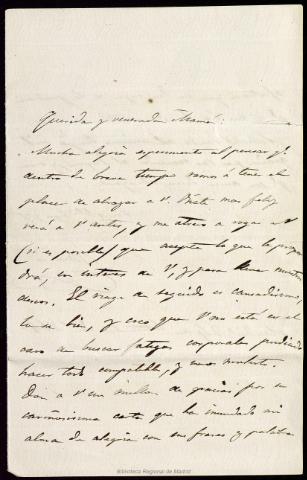 Querida y venerada Mamá:
Mucha alegría experimento al pensar q.
dentro de breve tiempo vamos á tener el
placer de abrazar a V. mas feliz
verá a V antes, y me atrevo a rogar a V
(si es posible) que acepte lo que le propon
drá, en interés de V. y para
deseos. El viage de seguido es cansadísimo,
lo se bien, y creo que V no está en el
caso de buscar fatigas corporales pudiendo
hacer todo compatible, y mas
Doy a V un millon de gracias por su
cariñosísima carta que ha inundado mi
alma de alegría con sus frases y palabra
Biblioteca Regional de Madrid